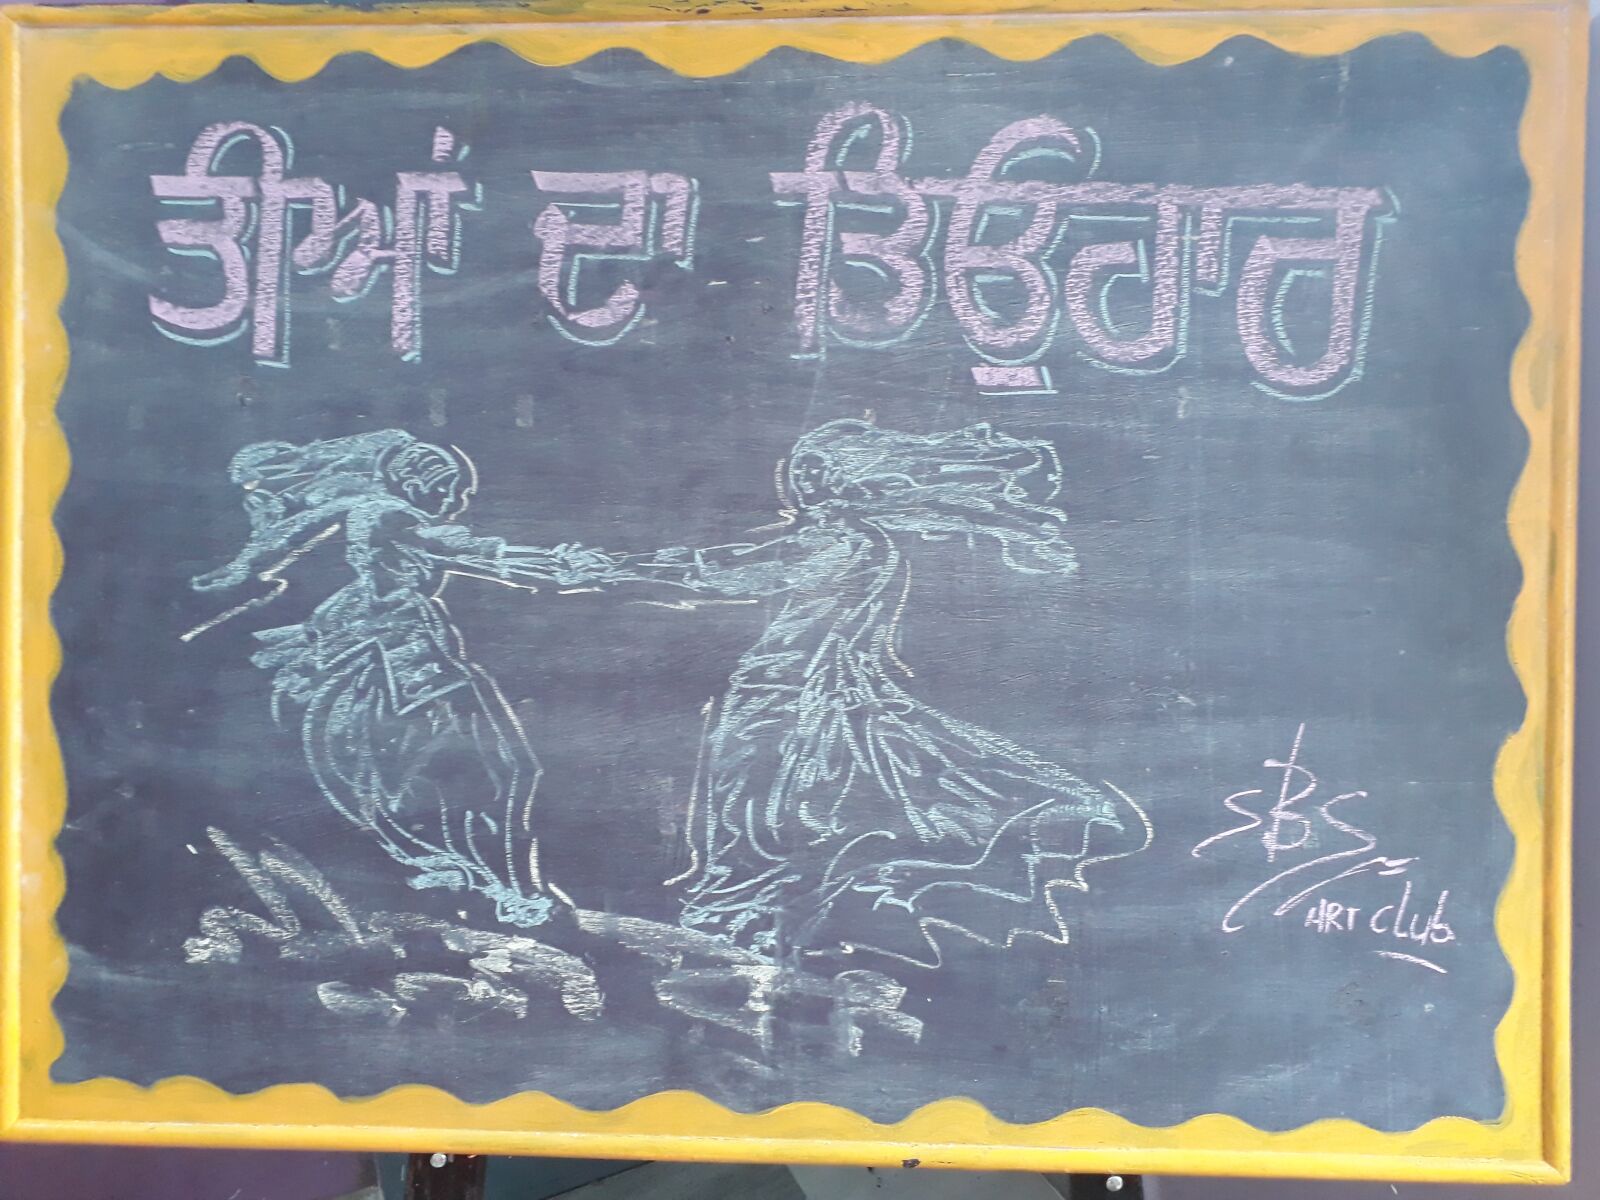 ਤੀਆਂ ਦਾ ਤਿਉਹਾਰ
SBS
ART Club